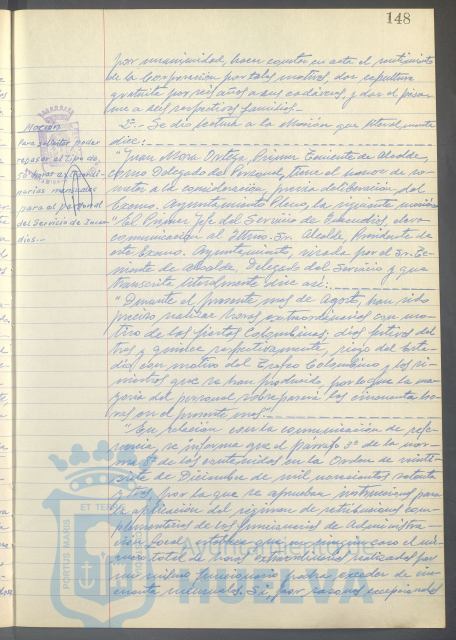 148
por unanimidad, hacer constar en acta el sentimiento
de la Corporación por tales motivos, dar sepultura
gratuita por seis años a sus cadáveres, y dar el pésa-
me a sus respectivos familias.-
2º.- Se dio lectura a la Moción que literalmente
dice:
MOCION
para solicitar poder
rebasar el tipo de
50 horas
mensuales
para el personal
del Servicio de Incen
dios.-
"Juan Mora Ortega, Primer Teniente de Alcalde,
como Delegado del Personal, tiene el honor de so-
meter a la consideración, previa deliberación del
Excmo. Ayuntamiento Pleno, la siguiente moción:
"El Primer Jefe del Servicio de Incendios, eleva
comunicación al Iltmo. Sr. Alcalde Presidente de
este Excmo. Ayuntamiento, visada por el Sr. Te-
niente de Alcalde, Delegado del Servicio y que
transcrita literalmente dice así:
"Durante el presente mes de Agosto, han sido
preciso realizar horas extraordinarias con mo-
tivo de las fiestas Colombinas, días festivos del
tres y quince respectivamente, riego del Esta-
dio con motivo del Trofeo Colombino y los si-
niestros que se han producido, por lo que la ma-
yoría del personal sobrepasará las cincuenta ho-
ras en el presente mes".
"En relación con la comunicación de refe-
rencia, se informa que el párrafo 3º de la nor-
ma 8ª de las contenidas en la Orden de veinti-
siete de Diciembre de mil novecientos setenta
y tres por la que se aprueban instrucciones para
la aplicación del régimen de retribuciones com-
plementarias de los funcionarios de Administra-
ción Local, establece que en ningún caso el nú-
mero total de horas extraordinarias realizadas por
un mismo funcionario podrá exceder de cin-
cuenta mensuales. Si, por razones excepcionales
PORTUS MARIS
ET TERRÆ
Ayuntamiento de
HUELVA